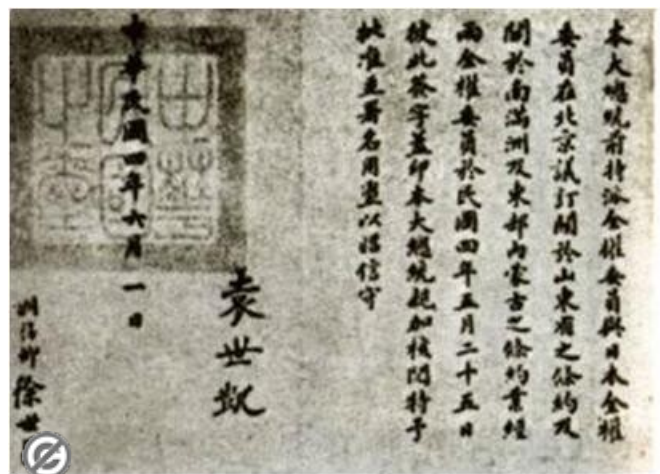 本大總統前特派全權委員與日本全權
委員在北京議訂關於山東省之條約及
關於南滿洲及東部內蒙古之條約業經
兩全權委員於民國四年五月二十五日
彼此簽字蓋印本大總統親加核閱特予
批准並署名用璽以昭信守
袁世凱
中華民國四年六月一日
徐世